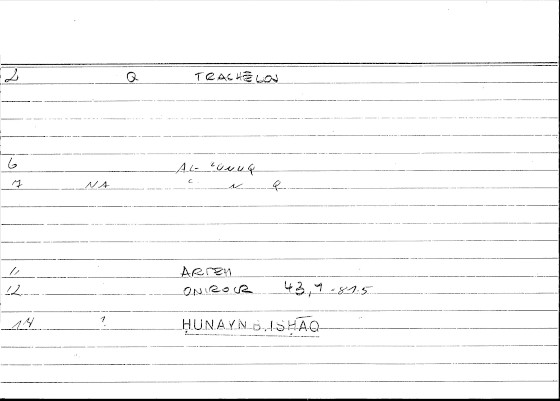 2 Q TRACHĒLOS
6 AL-ʿUNUQ
7 NA ʿ N Q
11 ARTEM
12 ONIROCR 43,1-87.5
14 ? ḤUNAYN B. ISḤĀQ